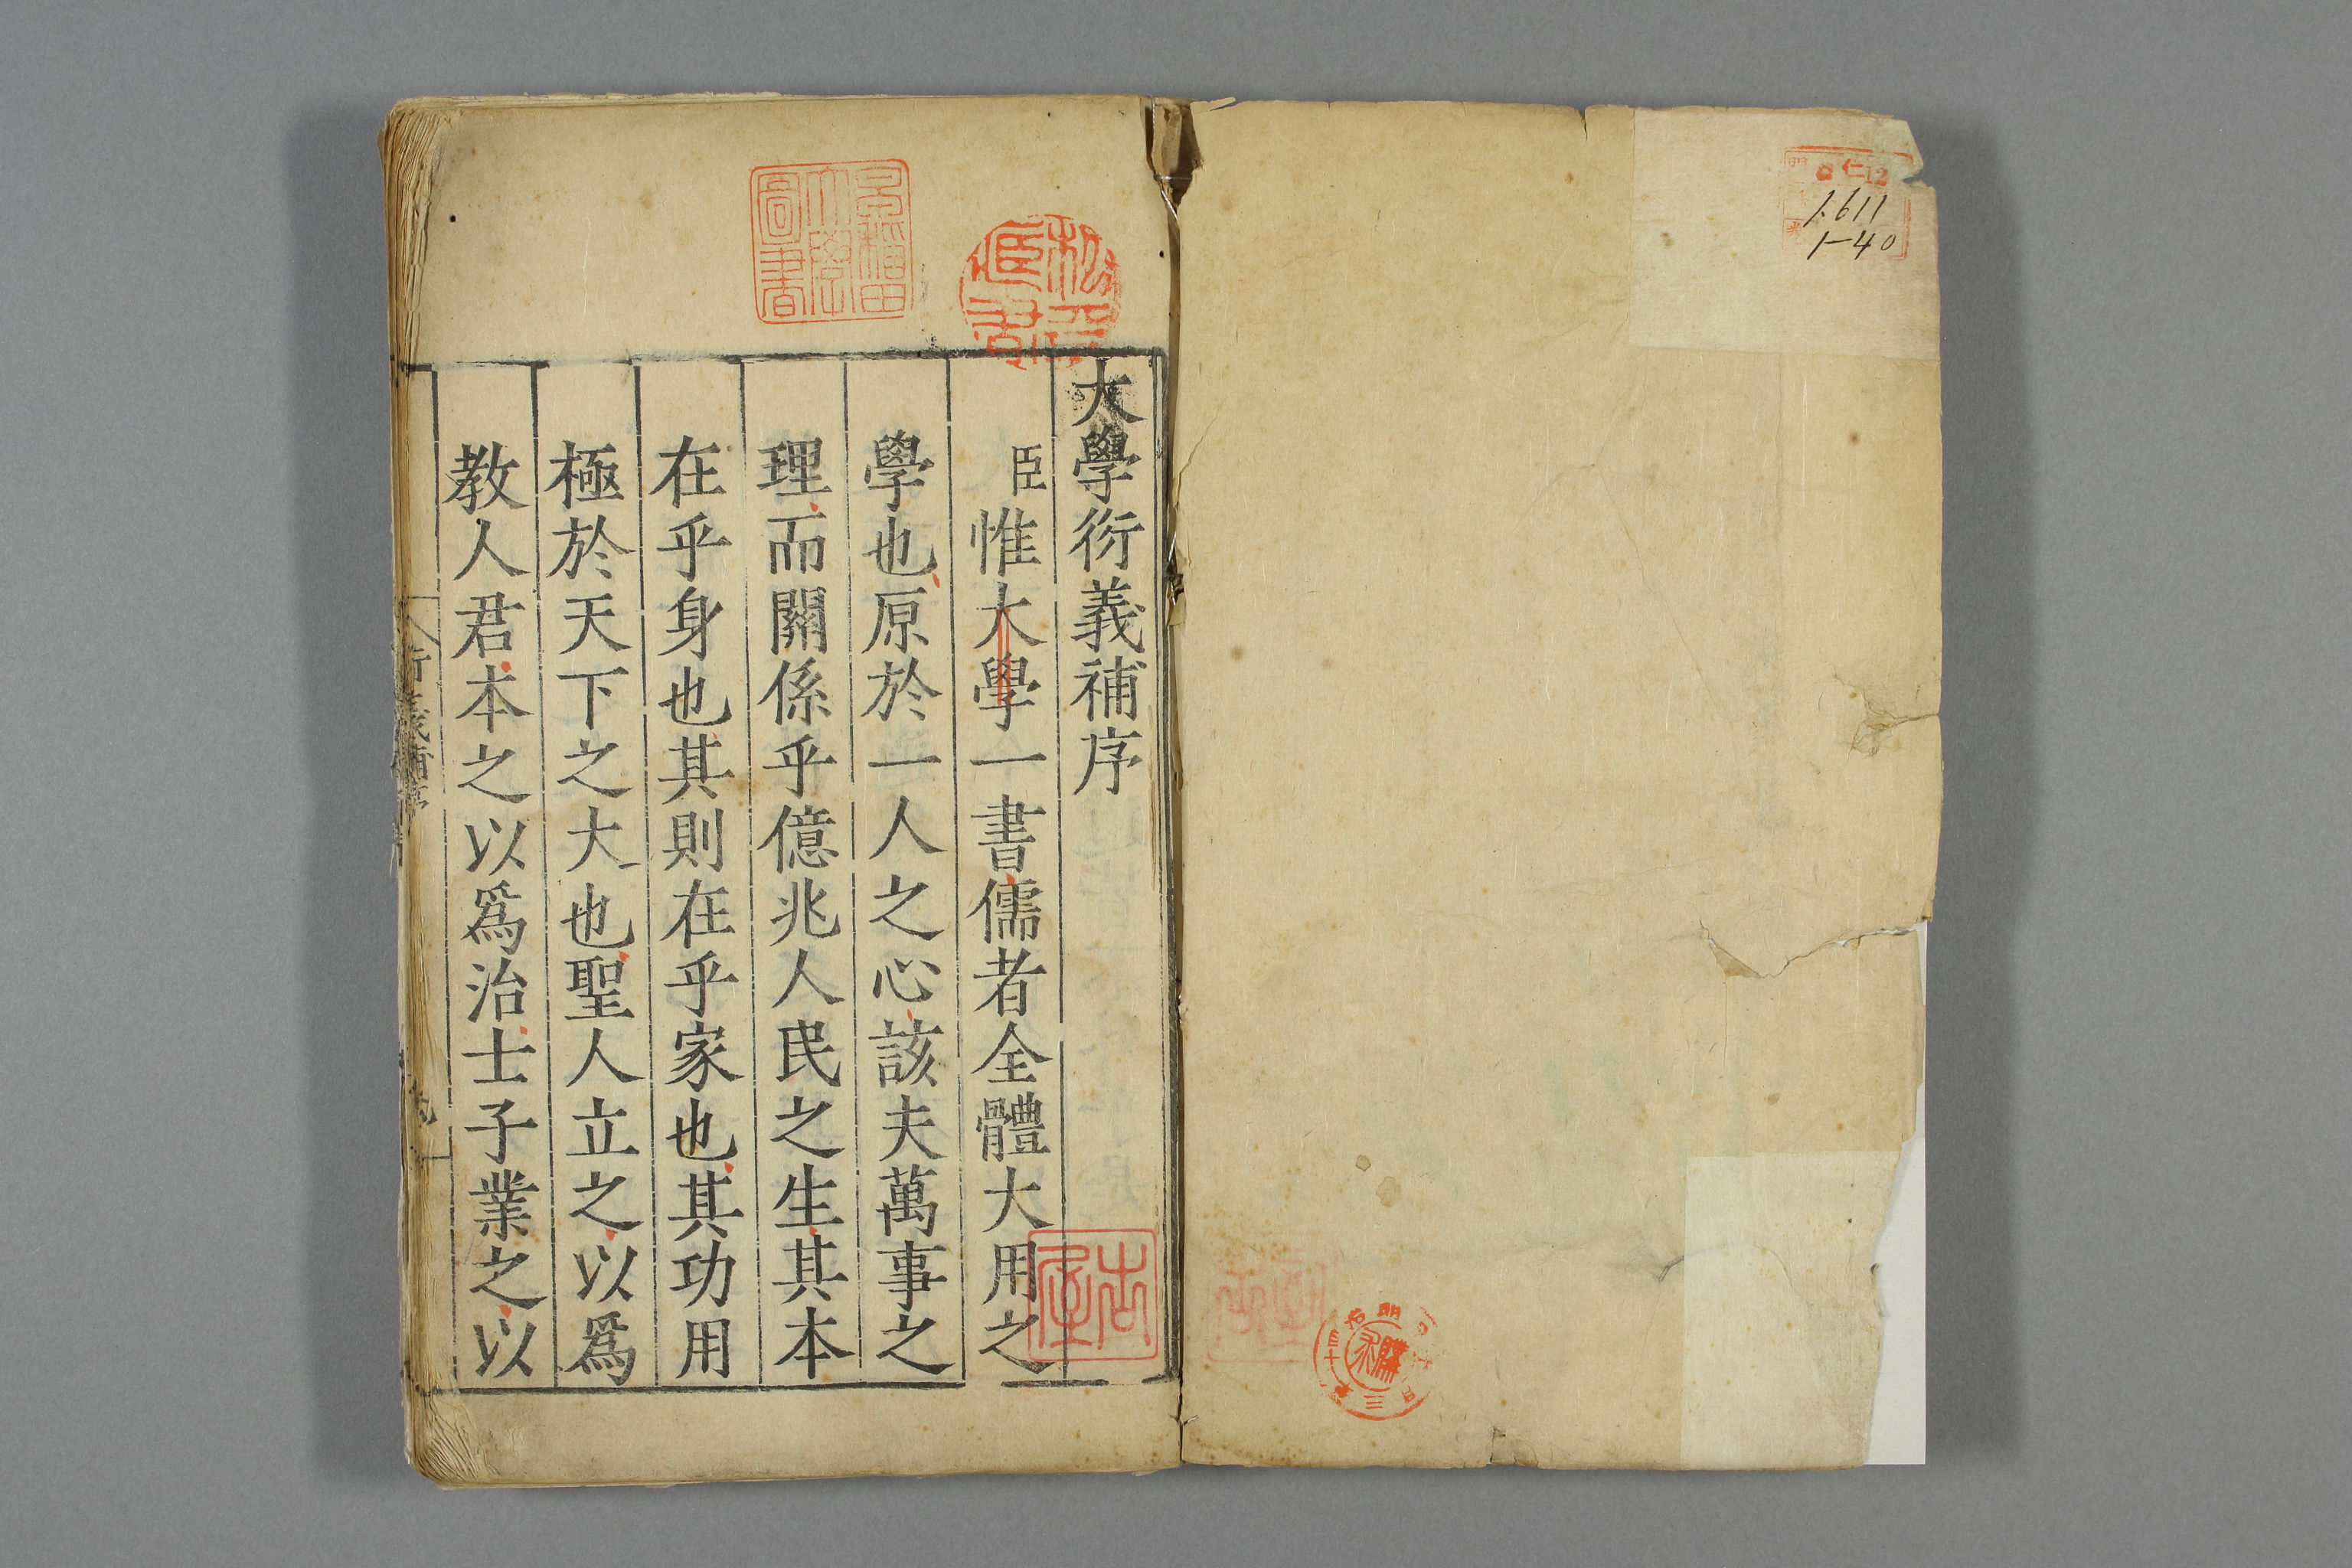 仁12
1611
1-40
早稲田大學圖書
大學衍義補序
臣惟大學一書儒者全體大用之
學也原於一人之心該夫萬事之
理而關係乎億兆人民之生其本
在乎身也其則在乎家也其功用
極於天下之大也聖人立之以爲
教人君本之以爲治士子業之以